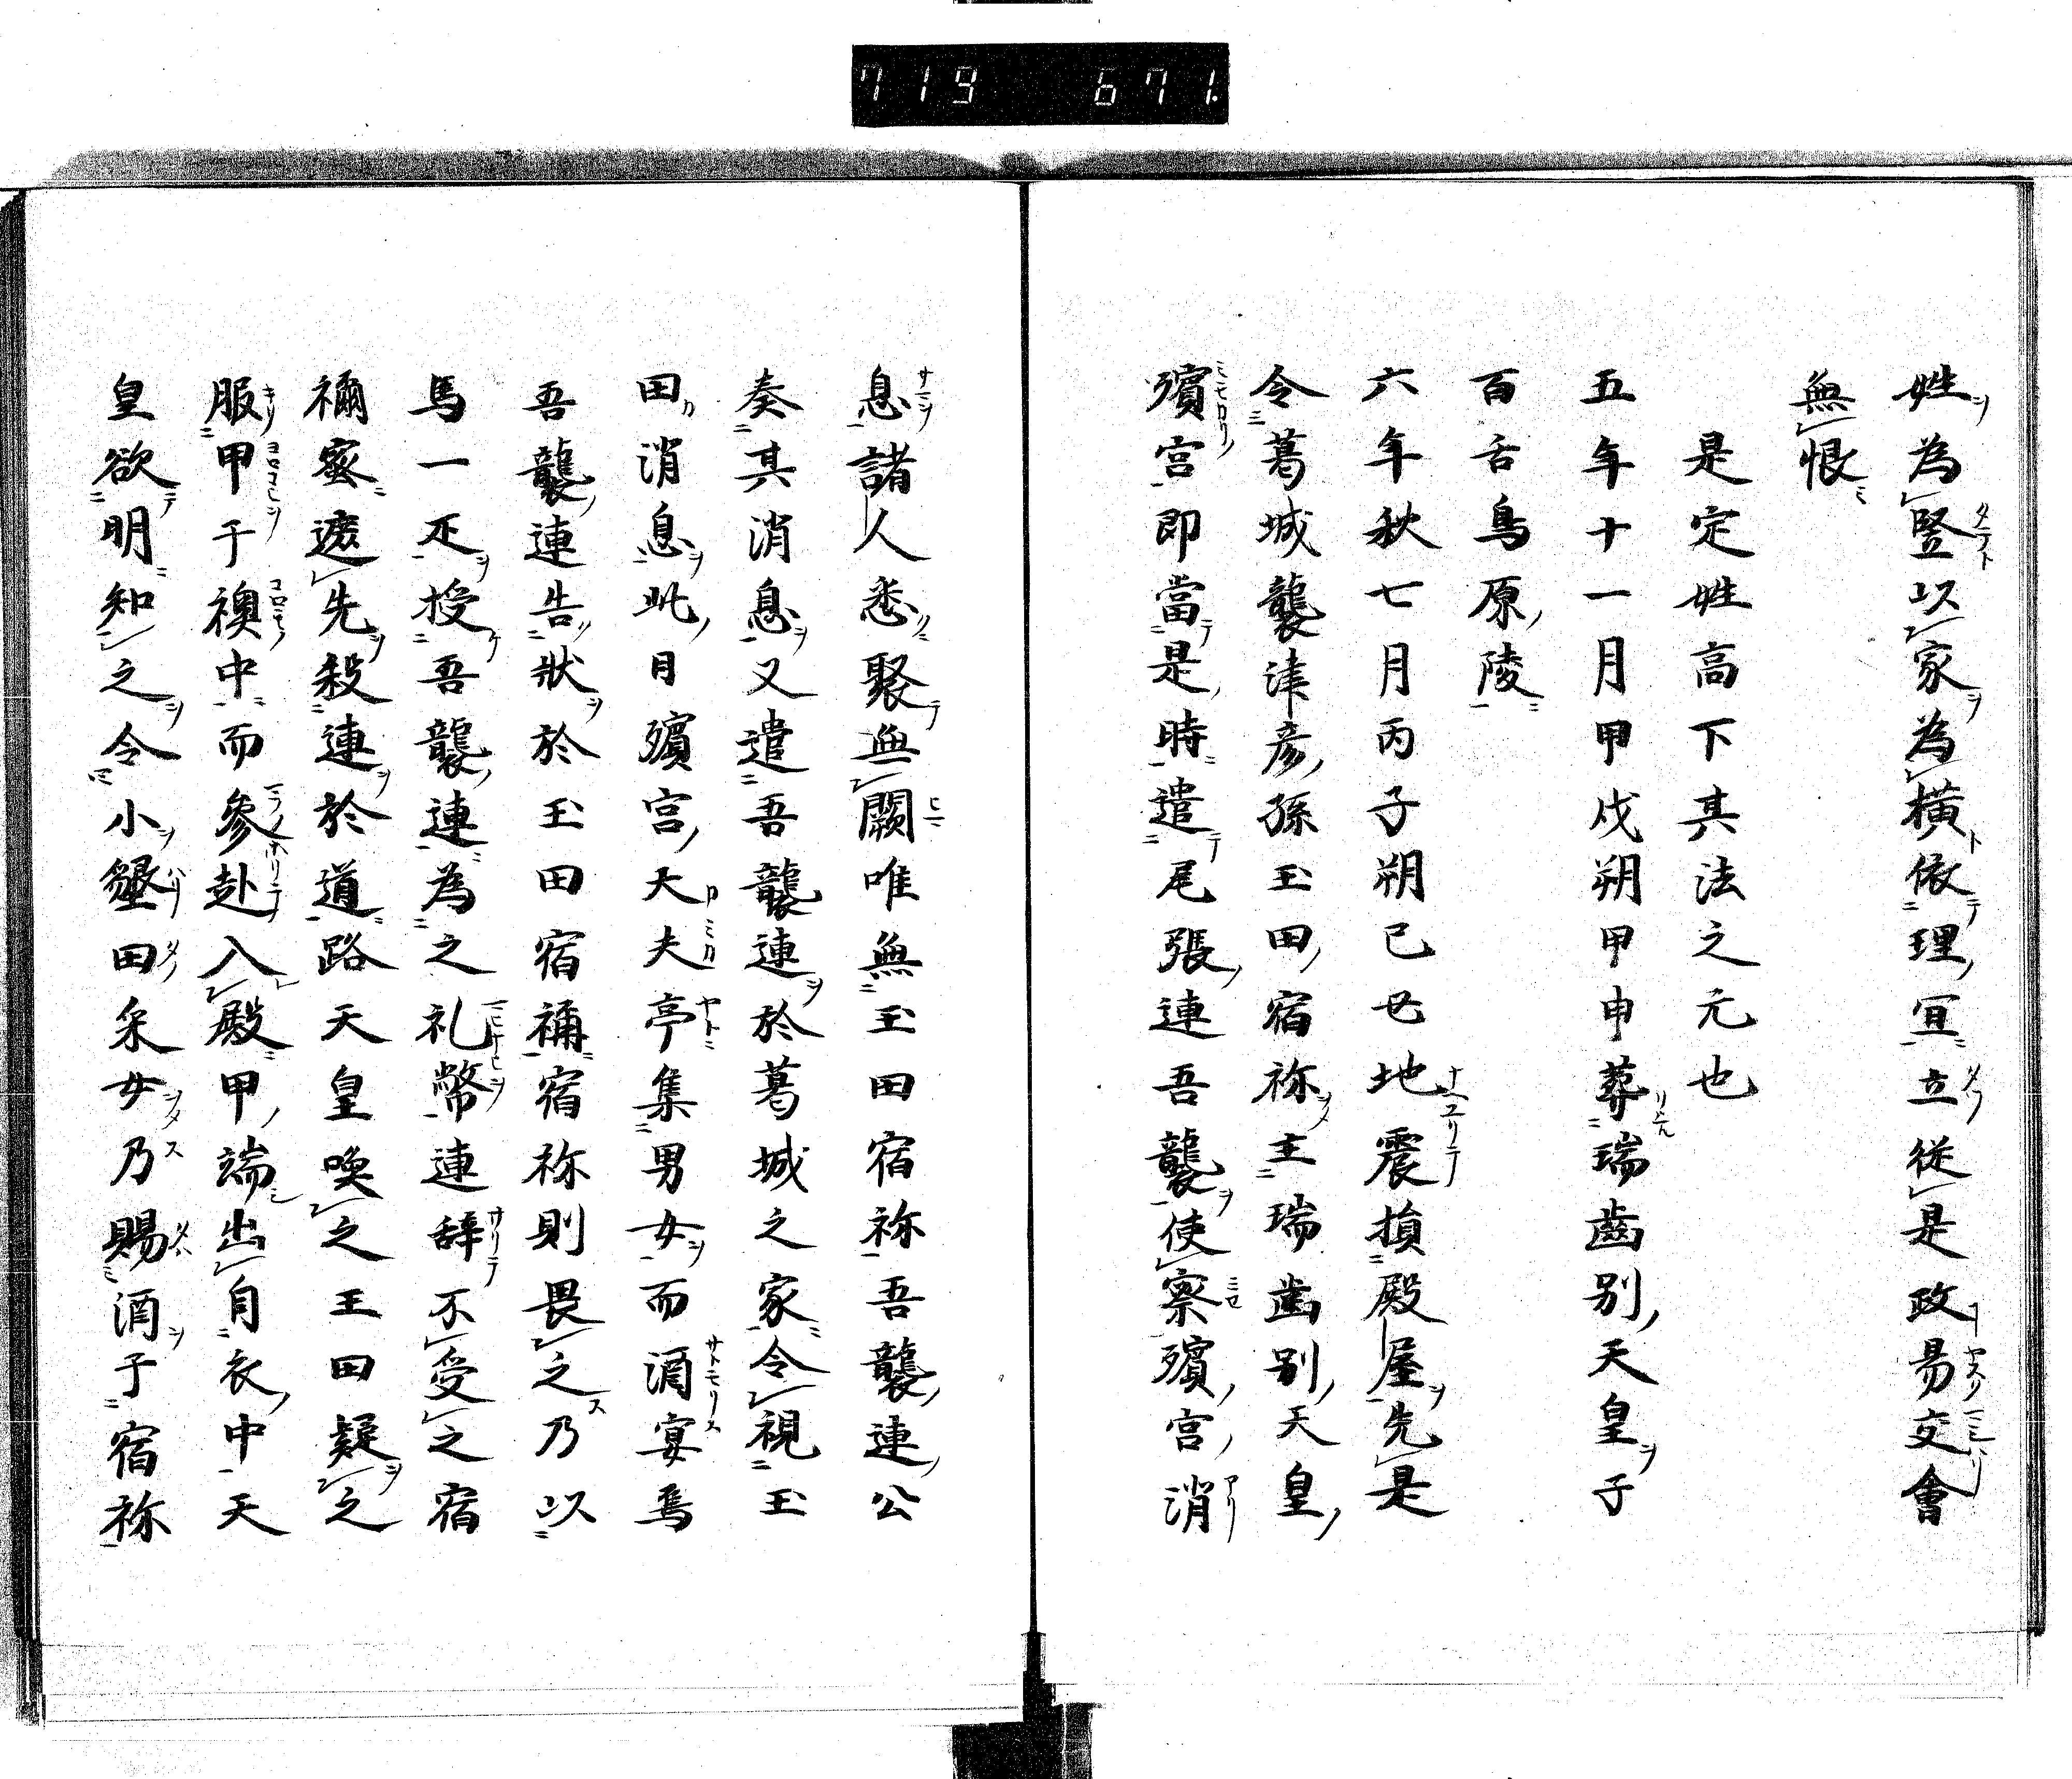 719 671.
姓為竪以家為横依理冝立従是政易交會
無恨
是定姓高下其法之元也
五年十一月甲戌朔甲申葬瑞齒别天皇子
百舌鳥原陵
六年秋七月丙子朔己丑地震損殿屋先是
令葛城襲津彦孫玉田宿祢主瑞歯别天皇
殯宮即當是時遣尾張連吾襲使察殯宮消
息諸人悉聚無闕唯無玉田宿祢吾襲連公
奏其消息又遣吾襲連於葛城之家令視玉
田消息此日殯宮大夫亭集男女而酒宴焉
吾襲連告狀於玉田宿禰宿祢則畏之乃以
馬一疋授吾襲連為之礼幣連辞不受之宿
禰密遮先殺連於道路天皇喚之玉田疑之
服甲于襖中而參赴入殿甲端出自衣中天
皇欲明知之令小墾田采女乃賜酒于宿祢